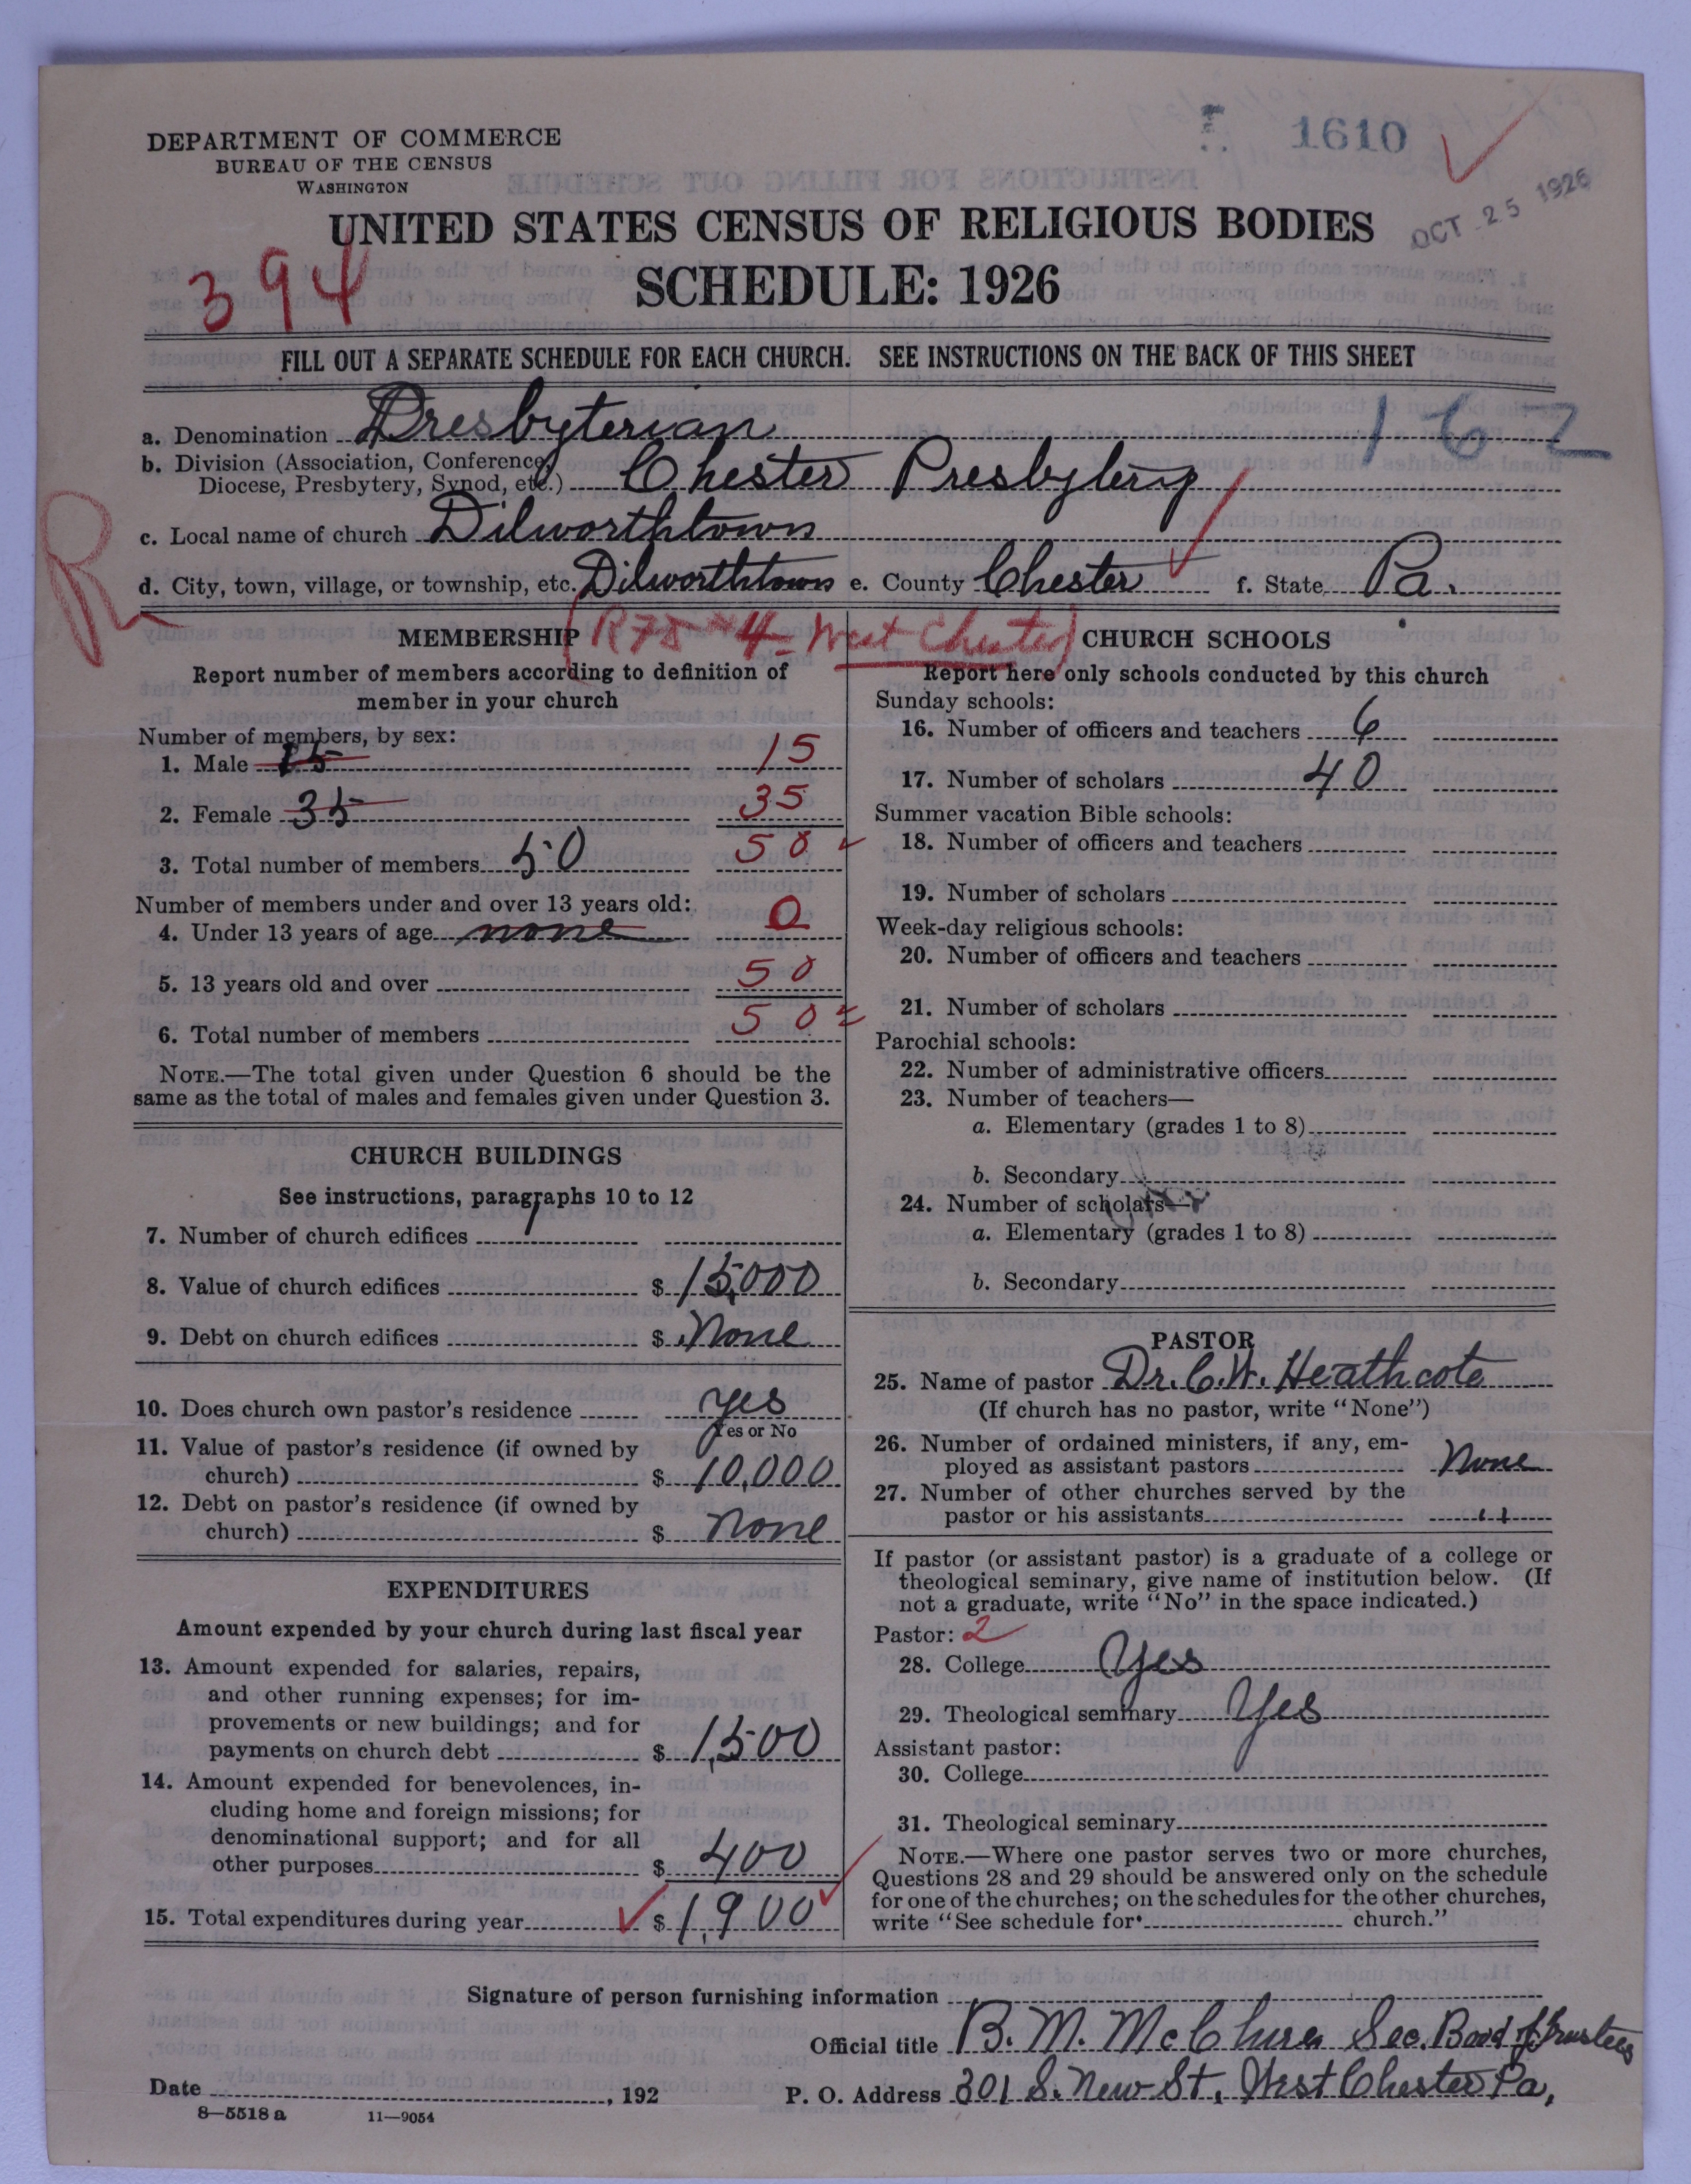 DEPARTMENT OF COMMERCE
BUREAU OF THE CENSUS
WASHINGTON
1610
OCT 25 1926
UNITED STATES CENSUS OF RELIGIOUS BODIES
394
SCHEDULE: 1926
FILL OUT A SEPARATE SCHEDULE FOR EACH CHURCH. SEE INSTRUCTIONS ON THE BACK OF THIS SHEET
a. Denomination Presbyterian 162
b. Division (Association, Conference,
Diocese, Presbytery, Synod, etc.) Chester Presbytery
R
c. Local name of church Dilworthtown
d. City, town, village, or township, etc. Dilworthtown e. County Chester f. State Pa.
(R7D #4- West Chester)
MEMBERSHIP
Report number of members according to definition of
member in your church
Number of members, by sex:
1. Male 15 15
2. Female 35 35
3. Total number of members 50 50
Number of members under and over 13 years old:
4. Under 13 years of age none 0
5. 13 years old and over 50
6. Total number of members 50
NOTE.—The total given under Question 6 should be the
same as the total of males and females given under Question 3.
CHURCH BUILDINGS
See instructions, paragraphs 10 to 12
7. Number of church edifices 1
8. Value of church edifices $ 15,000
9. Debt on church edifices $ None
10. Does church own pastor's residence yes
Yes or No
11. Value of pastor's residence (if owned by
church) $ 10,000
12. Debt on pastor's residence (if owned by
church) $ none
EXPENDITURES
Amount expended by your church during last fiscal year
13. Amount expended for salaries, repairs,
and other running expenses; for im-
provements or new buildings; and for
payments on church debt $ 1,500
14. Amount expended for benevolences, in-
cluding home and foreign missions; for
denominational support; and for all
other purposes $ 400
15. Total expenditures during year $ 1,900
CHURCH SCHOOLS
Report here only schools conducted by this church
Sunday schools:
16. Number of officers and teachers 6
17. Number of scholars 40
Summer vacation Bible schools:
18. Number of officers and teachers
19. Number of scholars
Week-day religious schools:
20. Number of officers and teachers
21. Number of scholars
Parochial schools:
22. Number of administrative officers
23. Number of teachers—
a. Elementary (grades 1 to 8)
b. Secondary
24. Number of scholars—
a. Elementary (grades 1 to 8)
b. Secondary
PASTOR
25. Name of pastor Dr. C. W. Heathcote
(If church has no pastor, write "None")
26. Number of ordained ministers, if any, em-
ployed as assistant pastors None
27. Number of other churches served by the
pastor or his assistants "
If pastor (or assistant pastor) is a graduate of a college or
theological seminary, give name of institution below. (If
not a graduate, write "No" in the space indicated.)
Pastor: 2
28. College Yes
29. Theological seminary Yes
Assistant pastor:
30. College
31. Theological seminary
NOTE.—Where one pastor serves two or more churches,
Questions 28 and 29 should be answered only on the schedule
for one of the churches; on the schedules for the other churches,
write "See schedule for church."
Signature of person furnishing information
Official title B. M. McClure Sec. Board of Trustees
Date , 192 P. O. Address 301 S. New St., West Chester Pa,
8—5518 a 11—9054